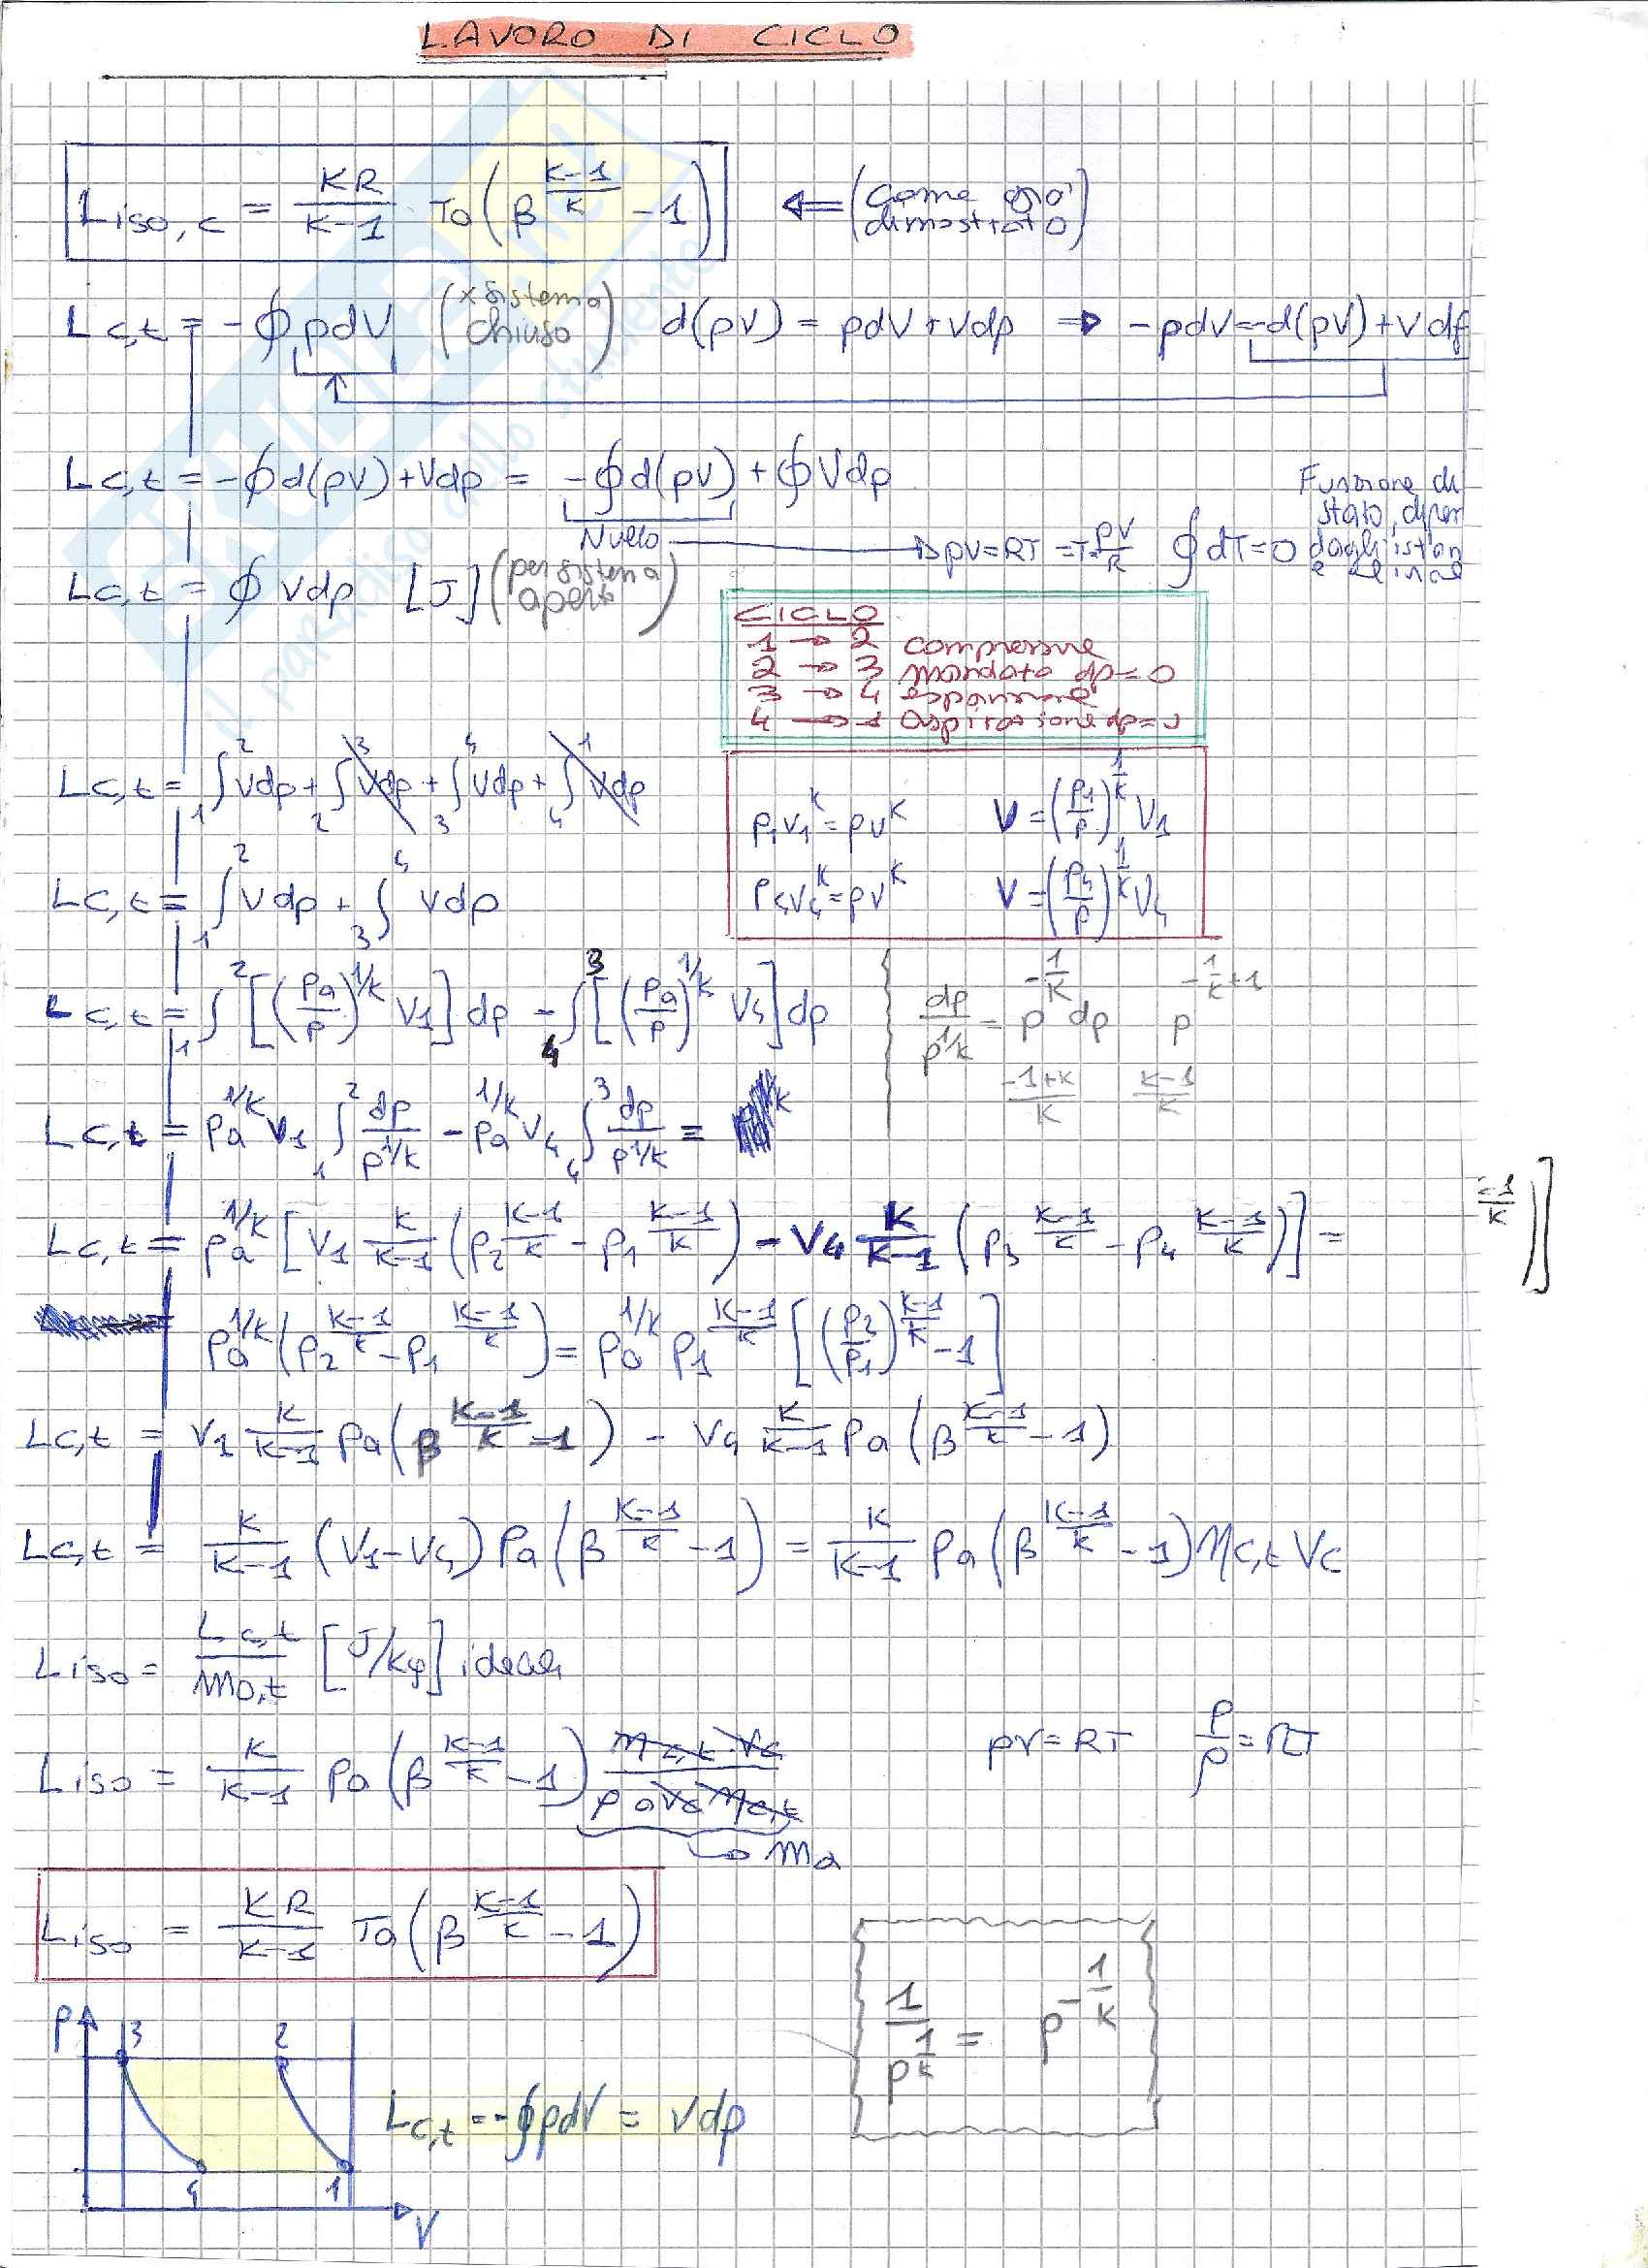 LAVORO DI CICLO
Liso,c = KR/K-1 Ta(β^(K-1/K) -1) ⇐ (come già dimostrato)
Lc,t = -∮pdV (x sistema chiuso) d(pV) = pdV+Vdp ⇒ -pdV=-d(pV)+Vdp
Lc,t = -∮d(pV)+Vdp = -∮d(pV) + ∮Vdp
Funzione di stato,
Nullo → pV=RT =T=pV/R ∮dT=0
Lc,t = ∮ Vdp [J] (per sistema aperto)
CICLO
1 → 2 compressione
2 → 3 mandata dp=0
3 → 4 espansione
4 → 1 aspirazione dp=0
Lc,t = ∫₁² Vdp + ∫₂³ Vdp + ∫₃⁴ Vdp + ∫₄¹ Vdp
p₁V₁^K = pV^K V = (p₁/p)^(1/K) V₁
Lc,t = ∫₁² Vdp + ∫₃⁴ Vdp
p₄V₄^K = pV^K V = (p₄/p)^(1/K) V₄
Lc,t = ∫₁² [(pa/p)^(1/K) V₁] dp - ∫₄³ [(pa/p)^(1/K) V₄] dp
dp/p^(1/K) = p^(-1/K) dp p^(-1/K+1)
-1+K/K K-1/K
Lc,t = pa^(1/K) V₁ ∫₁² dp/p^(1/K) - pa^(1/K) V₄ ∫₄³ dp/p^(1/K) =
Lc,t = pa^(1/K) [V₁ K/K-1 (p₂^(K-1/K) - p₁^(K-1/K)) - V₄ K/K-1 (p₃^(K-1/K) - p₄^(K-1/K))] =
pa^(1/K) (p₂^(K-1/K) - p₁^(K-1/K)) = pa^(1/K) p₁^(K-1/K) [(p₂/p₁)^(K-1/K) -1]
Lc,t = V₁ K/K-1 pa(β^(K-1/K) -1) - V₄ K/K-1 pa(β^(K-1/K) -1)
Lc,t = K/K-1 (V₁-V₄) pa(β^(K-1/K) -1) = K/K-1 pa(β^(K-1/K) -1) ηc,t Vc
Liso = Lc,t/m0,t [J/kg] ideale
Liso = K/K-1 pa(β^(K-1/K) -1) ηc,t·Vc/ρa Vc ηc,t
pv=RT p/ρ=RT
→ ma
Liso = KR/K-1 Ta(β^(K-1/K) -1)
1/p^(1/K) = p^(-1/K)
P 3 2
Lc,t = -∮pdV = Vdp
4 1
V